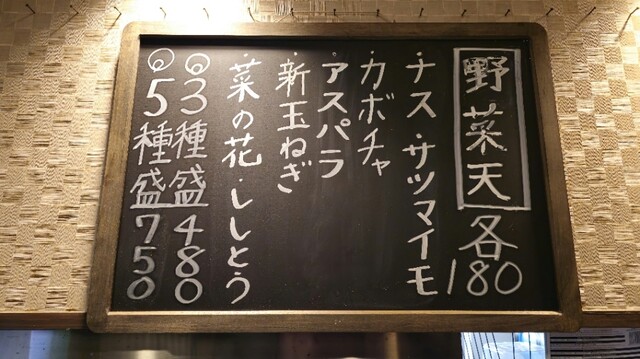 野菜天 各180
・ナス・サツマイモ
・カボチャ
・アスパラ
・新玉ねぎ
・菜の花・ししとう
◎3種盛480
◎5種盛750